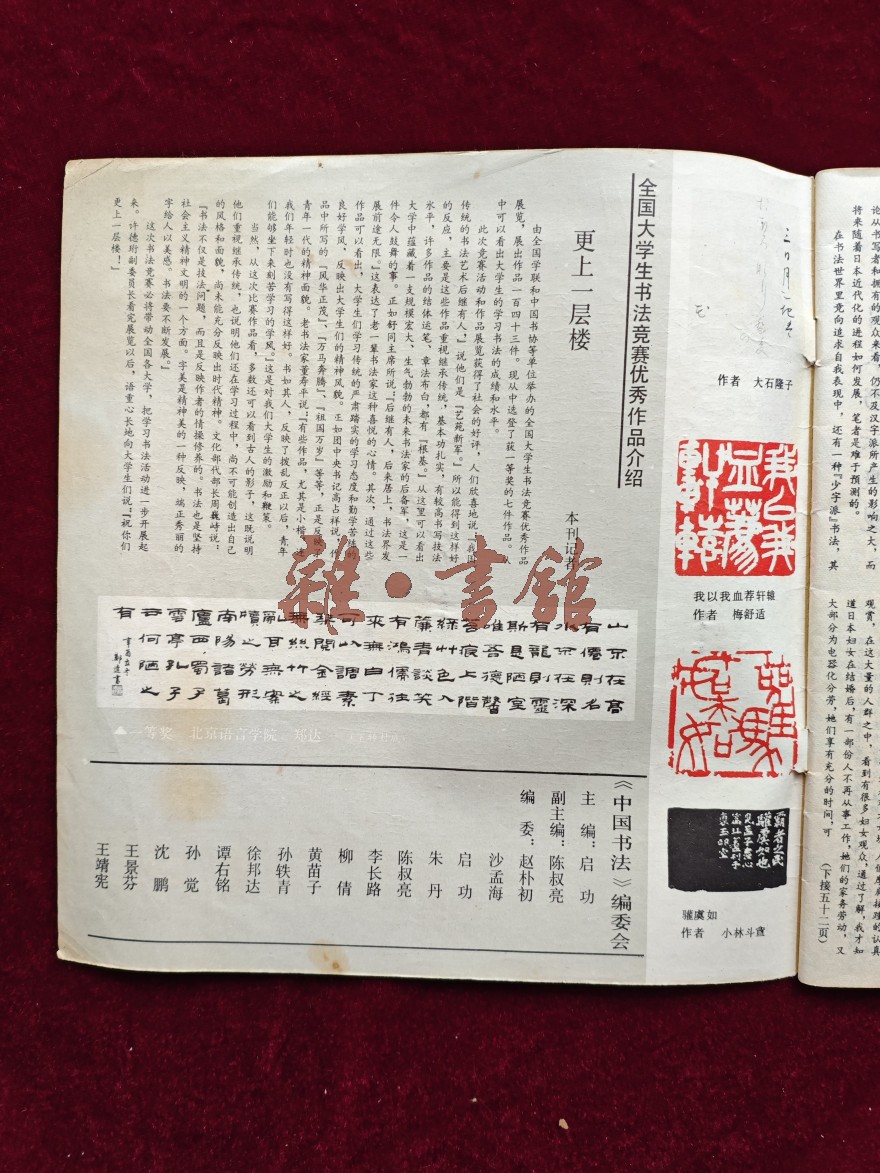 论从书写者和拥有的观众来看，仍不及汉字派所产生的影响之大，而
将来随着日本近代化的进程如何发展，笔者是难于预测的。
在书法世界里竟向追求自我表现中，还有一种『少字派』书法，其
观赏，在这大量的人群之中，看到有很多妇女观众，通过了解，我才知
道日本妇女在结婚后，有一部份人不再从事工作，她们的家务劳动，又
大部分为电器化分劳，她们享有充分的时间，可
（下接五十二页）
作者 大石隆子
我以我血荐轩辕
作者 梅舒适
驩虞如
作者 小林斗盦
全国大学生书法竞赛优秀作品介绍
更上一层楼
本刊记者
由全国学联和中国书协等单位举办的全国大学生书法竞赛优秀作品
展览，展出作品一百四十三件。现从中选登了获一等奖的七件作品。从
中可以看出大学生的学习书法的成绩和水平。
此次竞赛活动和作品展览获得了社会的好评，人们欣喜地说『我国
传统的书法艺术后继有人』，说他们是『艺苑新军』。所以能得到这样好
的反应，主要是这些作品重视继承传统，基本功扎实，有较高书写技法
水平，许多作品的结体运笔、章法布白，都有『根基』。从这里可以看出
大学中蕴藏着一支规模宏大、生气勃勃的未来书法家的后备军，这是一
件令人鼓舞的事。正如舒同主席所说：『后继有人，后来居上，书法界发
展前途无限。』这表达了老一辈书法家这种喜悦的心情。其次，通过这些
作品可以看出，大学生们学习传统的严肃踏实的学习态度和勤学苦练的
良好学风，反映出大学生们的精神风貌。正如团中央书记高占祥说：作
品中所写的『风华正茂』、『万马奔腾』、『祖国万岁』等等，正是反映了
青年一代的精神面貌。老书法家董寿平说：『有些作品，尤其是小楷，连
我们年轻时也没有写得这样好。书如其人，反映了拨乱反正以后，青年
们能够坐下来刻苦学习的学风。』这是对我们大学生的激励和鞭策。
当然，从这次比赛作品看，多数还可以看到古人的影子，这既说明
他们重视继承传统，也说明他们还在学习过程中，尚不可能创造出自己
的风格和面貌，尚未能充分反映出时代精神。文化部代部长周巍峙说：
『书法不仅是技法问题，而且是反映作者的情操修养的。书法也是坚持
社会主义精神文明的一个方面。字美是精神美的一种反映，端正秀丽的
字给人以美感。书法要不断发展。』
这次书法竞赛必将带动全国各大学，把学习书法活动进一步开展起
来。许德珩副委员长看完展览以后，语重心长地向大学生们说：『祝你们
更上一层楼！』
雜·書館
山不在高
有僊則名
水不在深
有龍則靈
斯是陋室
唯吾德馨
苔痕上階
綠艸色入
簾青談笑
有鴻儒往
來無白丁
可以調素
琴閱金經
無絲竹之
亂耳無案
牘之勞形
南陽諸葛
廬西蜀子
雲亭孔子
云何陋之
有
▲一等奖 北京语言学院 郑达
《中国书法》编委会
主 编：启 功
副主编：陈叔亮
编 委：赵朴初
沙孟海
启 功
朱 丹
陈叔亮
李长路
柳 倩
黄苗子
孙轶青
徐邦达
谭右铭
孙 觉
沈 鹏
王景芬
王靖宪